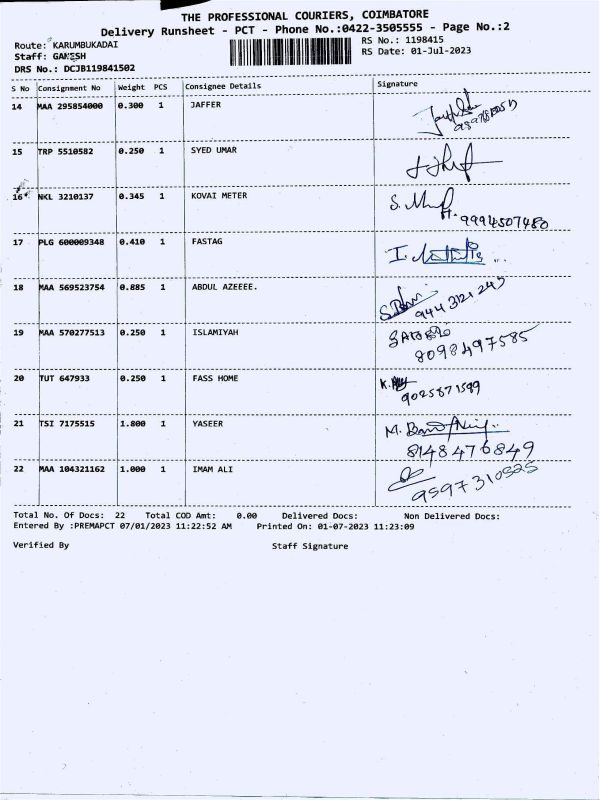 THE PROFESSIONAL COURIERS, COIMBATORE
Delivery Runsheet - PCT - Phone No.:0422-3505555 - Page No.:2
Route: KARUMBUKADAI
RS No.: 1198415
Staff: GANESH
RS Date: 01-Jul-2023
DRS No.: DCJB119841502
S No Consignment No Weight PCS Consignee Details Signature
14 MAA 295854000 0.300 1 JAFFER
15 TRP 5510582 0.250 1 SYED UMAR
16 NKL 3210137 0.345 1 KOVAI METER
9994507480
17 PLG 600009348 0.410 1 FASTAG
18 MAA 569523754 0.885 1 ABDUL AZEEEE.
944 3121 245
19 MAA 570277513 0.250 1 ISLAMIYAH
8098497585
20 TUT 647933 0.250 1 FASS HOME
9025871599
21 TSI 7175515 1.800 1 YASEER
8148476849
22 MAA 104321162 1.000 1 IMAM ALI
9597310525
Total No. Of Docs: 22 Total COD Amt: 0.00 Delivered Docs: Non Delivered Docs:
Entered By :PREMAPCT 07/01/2023 11:22:52 AM Printed On: 01-07-2023 11:23:09
Verified By Staff Signature